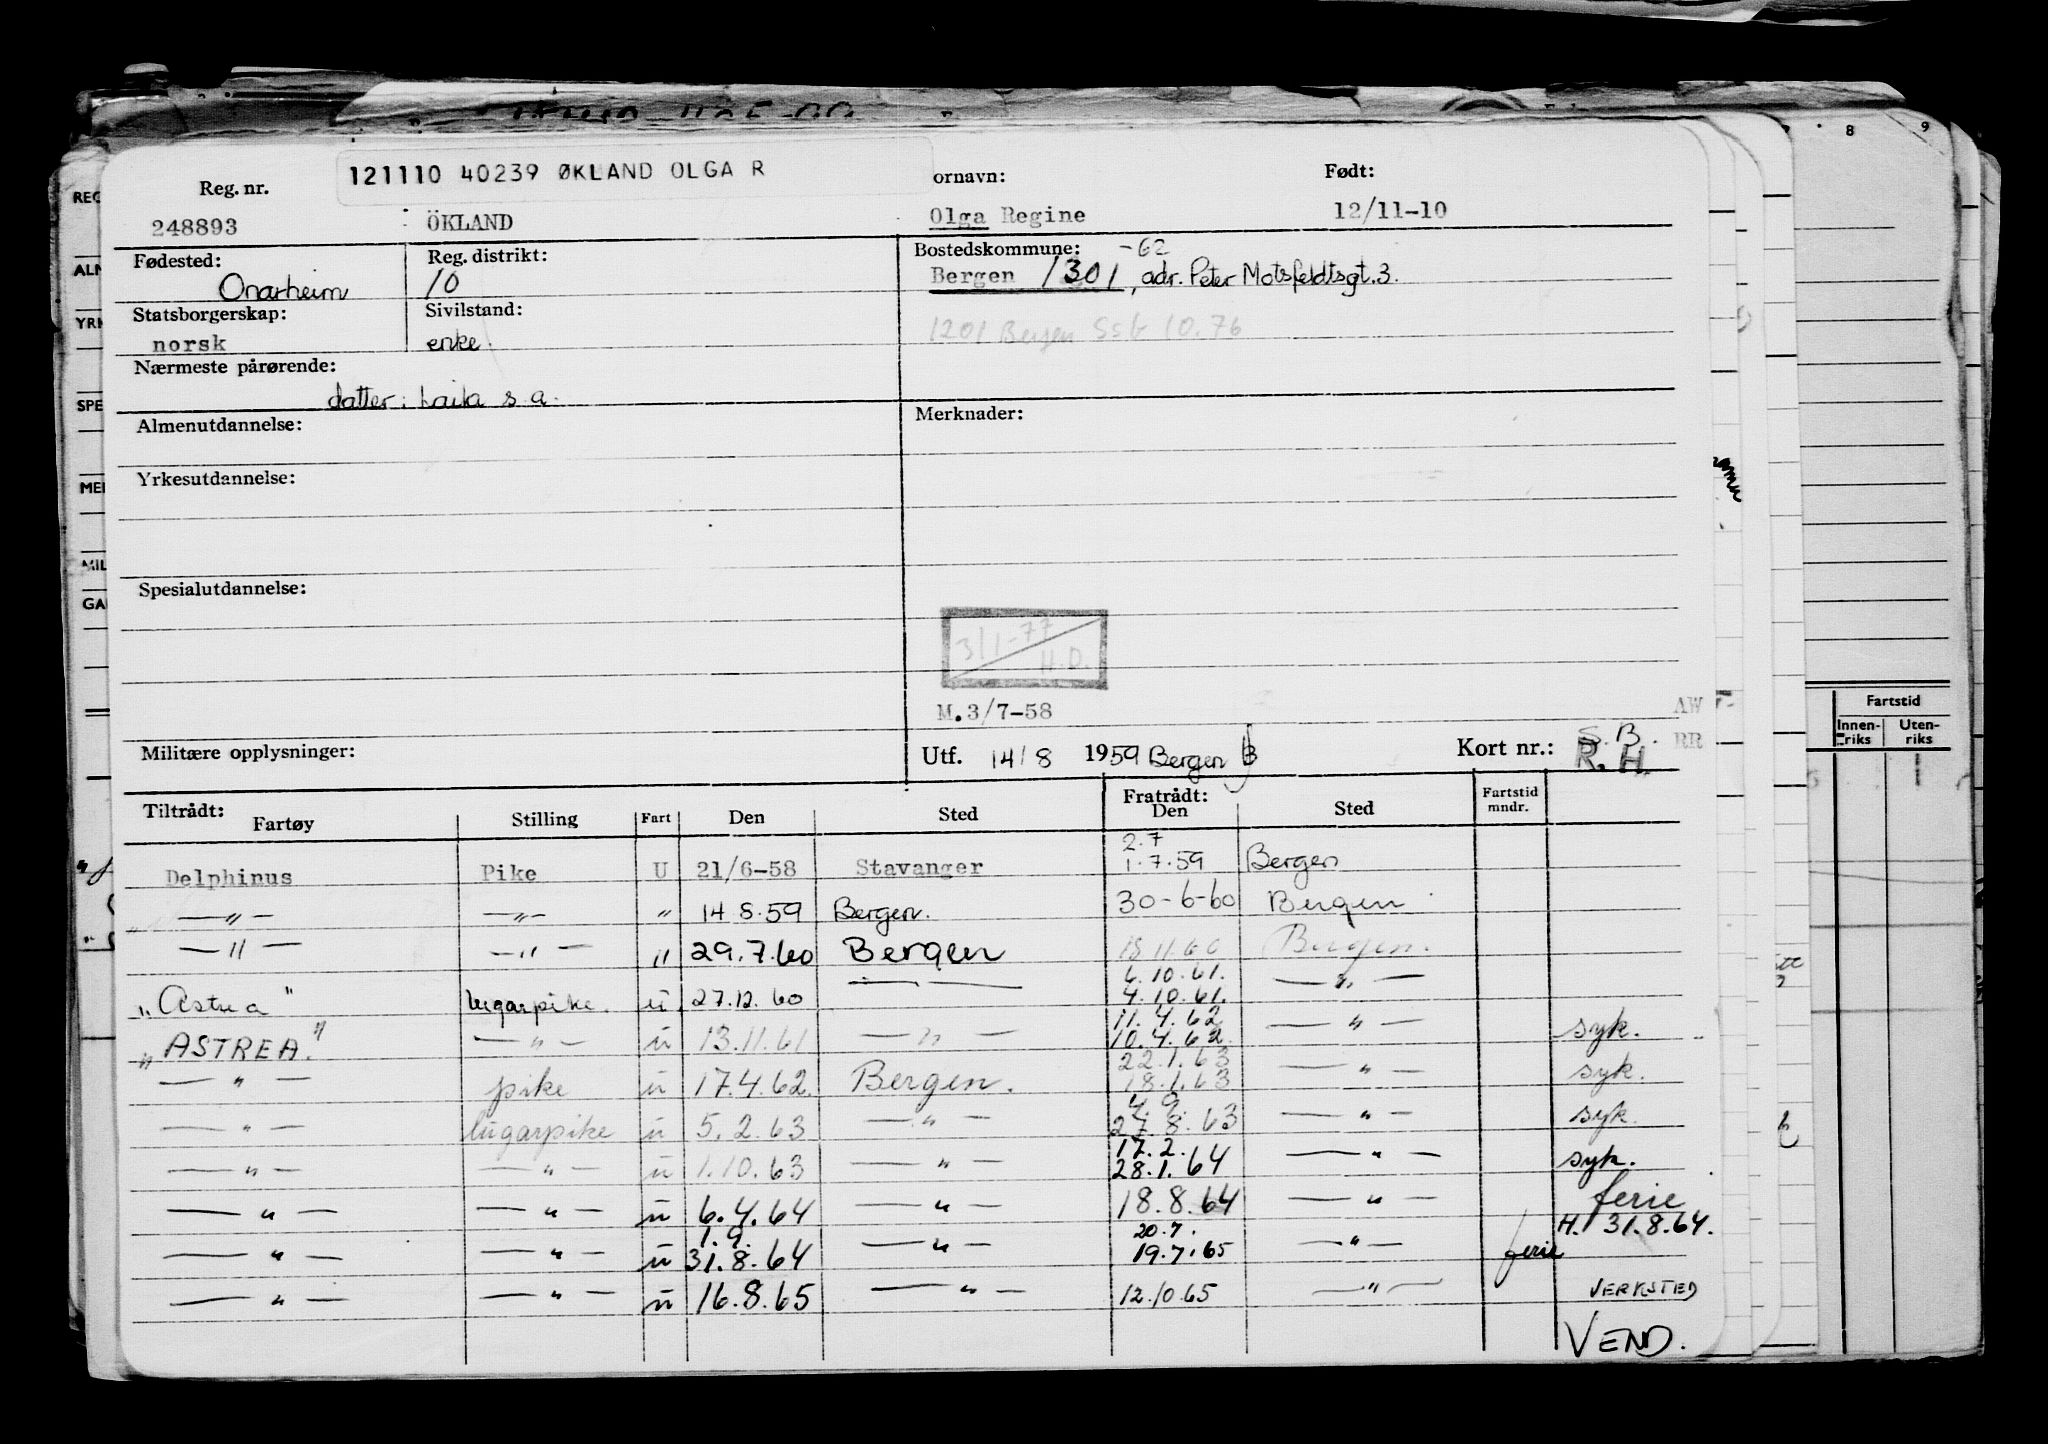 121110 40239 ØKLAND OLGA R
Reg. nr.
ornavn:
Født:
248893
ÖKLAND
Olga Regine
12/11-10
Fødested:
Onarheim
Reg. distrikt:
10
Bostedskommune:
-62
Bergen 1301, adr. Peter Motsfeldtsgt. 3.
Statsborgerskap:
norsk
Sivilstand:
enke.
1201 Bergen Ssb 10.76
Nærmeste pårørende:
datter: Laila s.a.
Almenutdannelse:
Merknader:
Yrkesutdannelse:
Spesialutdannelse:
3/1-77
H.O.
M.3/7-58
AW
Militære opplysninger:
Utf. 14/8 1959 Bergen
Kort nr.:
S.B.
R.H.
RR
Tiltrådt:
Fartøy
Stilling
Fart
Den
Sted
Fratrådt:
Den
Sted
Fartstid
mndr.
Delphinus Pike U 21/6-58 Stavanger 2.7 1.7.59 Bergen
—„— —„— „ 14.8.59 Bergen. 30-6-60 Bergen
—„— —„— „ 29.7.60 Bergen 18.11.60 Bergen.
„Astrea" lugarpike. u 27.12.60 —— 6.10.61. 4.10.61. —„—
„ASTREA." —„— u 13.11.61 —„— 11.4.62 10.4.62. —„— syk.
—„— pike u 17.4.62. Bergen. 22.1.63 18.1.63 —„— syk.
—„— lugarpike u 5.2.63 —„— 4.9. 27.8.63 —„— syk.
—„— —„— u 1.10.63 —„— 17.2. 28.1.64 —„— syk.
—„— —„— u 6.4.64 —„— 18.8.64 —„— ferie
H. 31.8.64.
—„— —„— u 1.9. 31.8.64 —„— 20.7. 19.7.65 —„— ferie
—„— —„— u 16.8.65 —„— 12.10.65 —„— VERKSTED
VEND.
REG
ALM
YRK
SPE
MEI
MIL
GA
8
9
Fartstid
Innen-
riks
Uten-
riks